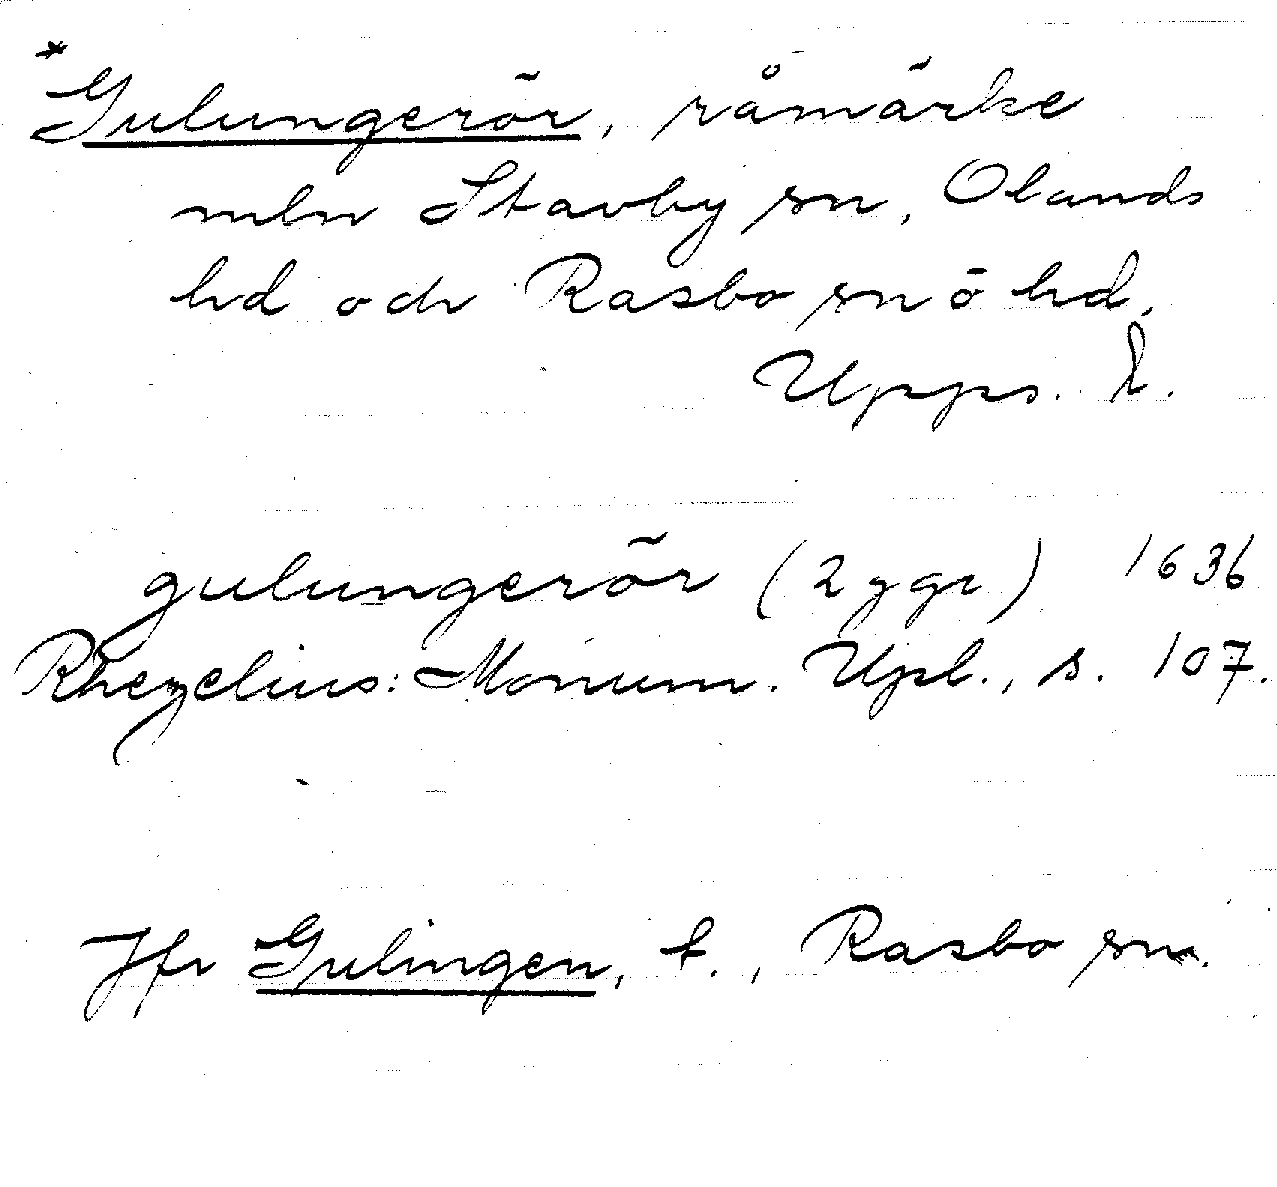 *Gulungerör, råmärke
mln Stavby sn, Olands
hd och Rasbo sn ö hd,
Upps. l.
gulungerör (2 ggr) 1636
Rhezelius: Monum. Upl., s. 107.
Jfr Gulingen, t., Rasbo sn.